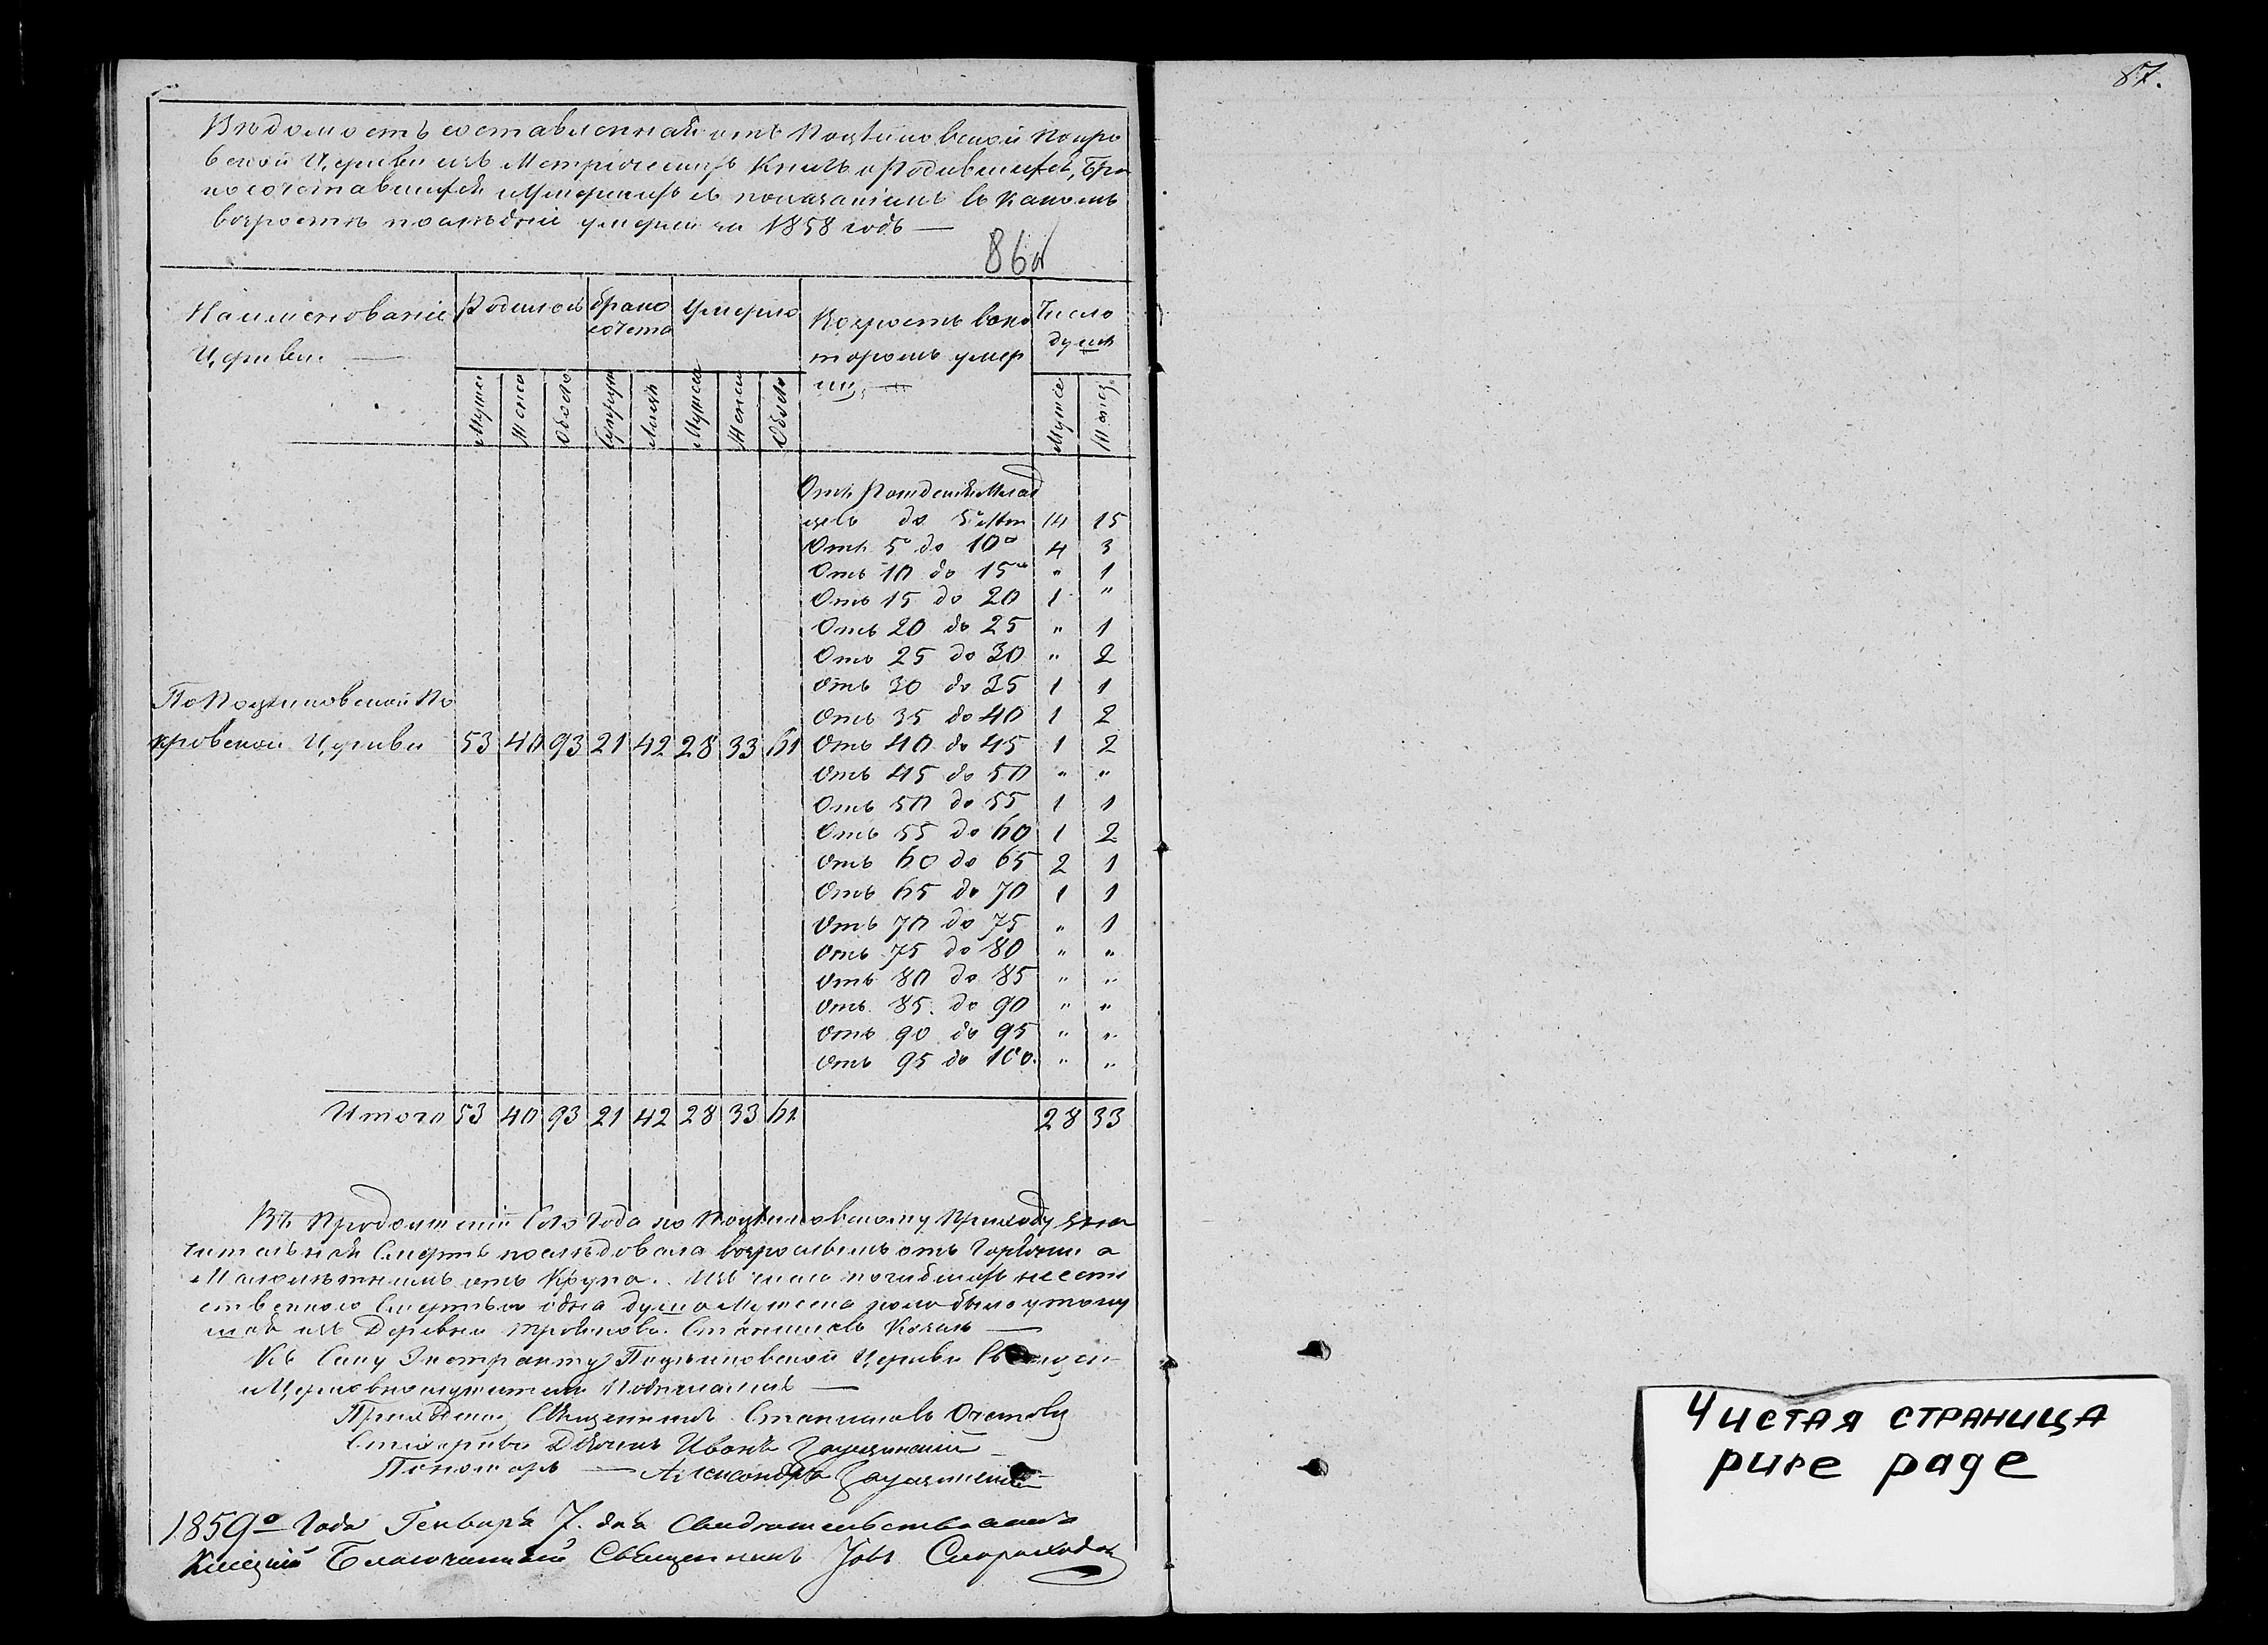 87.
Вѣдомость составленная отъ Поцѣйковской Покро
вской Церкви изъ Метрическихъ Книгъ о Родившихся, Бра
косочетавшихся и Умершихъ съ показаніемъ въ какомъ
возрастѣ послѣдніе умерли за 1858 годъ —
86а
Наименованіе Родилось Брако Умерло Возрастъ вако Число
Церкви. — сочета торомъ умер душъ
ли, —
Муже Женс Обоего Супруж Лицъ Мужска Женск Обоего Муже Женс
Отъ Рожденія Млад
цевъ до 5ᵒ лѣт 14 15
Отъ 5ᵒ до 10ᵒ 4 3
Отъ 10 до 15ᵒ " 1
Отъ 15 до 20 1 "
Отъ 20 до 25 " 1
Отъ 25 до 30 " 2
Отъ 30 до 35 1 1
По Поцѣйковской По
Отъ 35 до 40 1 2
кровской Церкви 53 40 93 21 42 28 33 61 Отъ 40 до 45 1 2
Отъ 45 до 50 " "
Отъ 50 до 55 1 1
Отъ 55 до 60 1 2
Отъ 60 до 65 2 1
Отъ 65 до 70 1 1
Отъ 70 до 75 " 1
Отъ 75 до 80 " "
Отъ 80 до 85 " "
Отъ 85. до 90 " "
Отъ 90 до 95 " "
Отъ 95 до 100. " "
Итого 53 40 93 21 42 28 33 61 28 33
Въ продолженіи Сего Года по Приходу зна
чительная Смерть послѣдовала взрослымъ отъ Горячки а
Малолѣтнимъ отъ Крупа. Изъ числа погибшихъ неесте
ственною Смертью одна душа Мужска пола было утону
шая изъ Деревни Станиславъ
Къ Сему Экстракту Церкви Священ
и Церковнослужители Подписались —
Приходскій Священникъ Станиславъ
Дьячекъ Иванъ
Пономарь — Александръ
1859ᵒ Года Генваря 7. дня Свидѣтельствовалъ
Благочинный Священникъ Іовъ Скороходов
Чистая страница
pure page